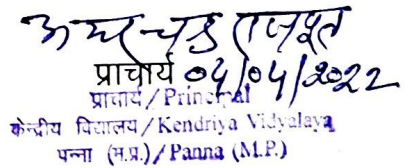 अमर चन्द्र राजपूत
प्राचार्य 04/04/2022
प्राचार्य/Principal
केन्द्रीय विद्यालय/Kendriya Vidyalaya
पन्ना (म.प्र.)/Panna (M.P.)